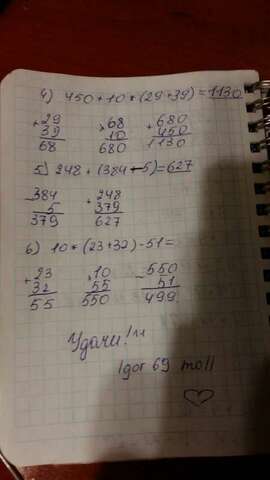 4) 450 + 10 * (29 + 39) = 1130
+29 ×68 +680
39 10 450
68 680 1130
5) 248 + (384 - 5) = 627
-384 +248
5 379
379 627
6) 10 * (23 + 32) - 51 =
+23 ×10 -550
32 55 51
55 550 499
Удачи!
Igor 69 moll